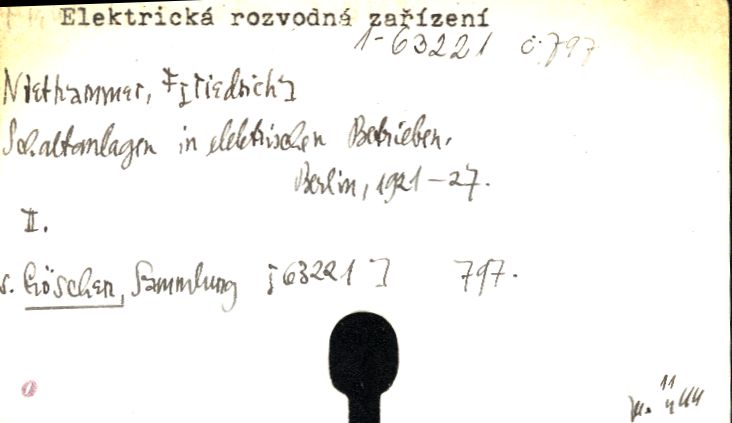 Elektrická rozvodná zařízení
1-63221 č.797
Niethammer, F[riedrich]
Schaltanlagen in elektrischen Betrieben.
Berlin, 1921-27.
II.
s. Göschen, Sammlung [63221] 797.